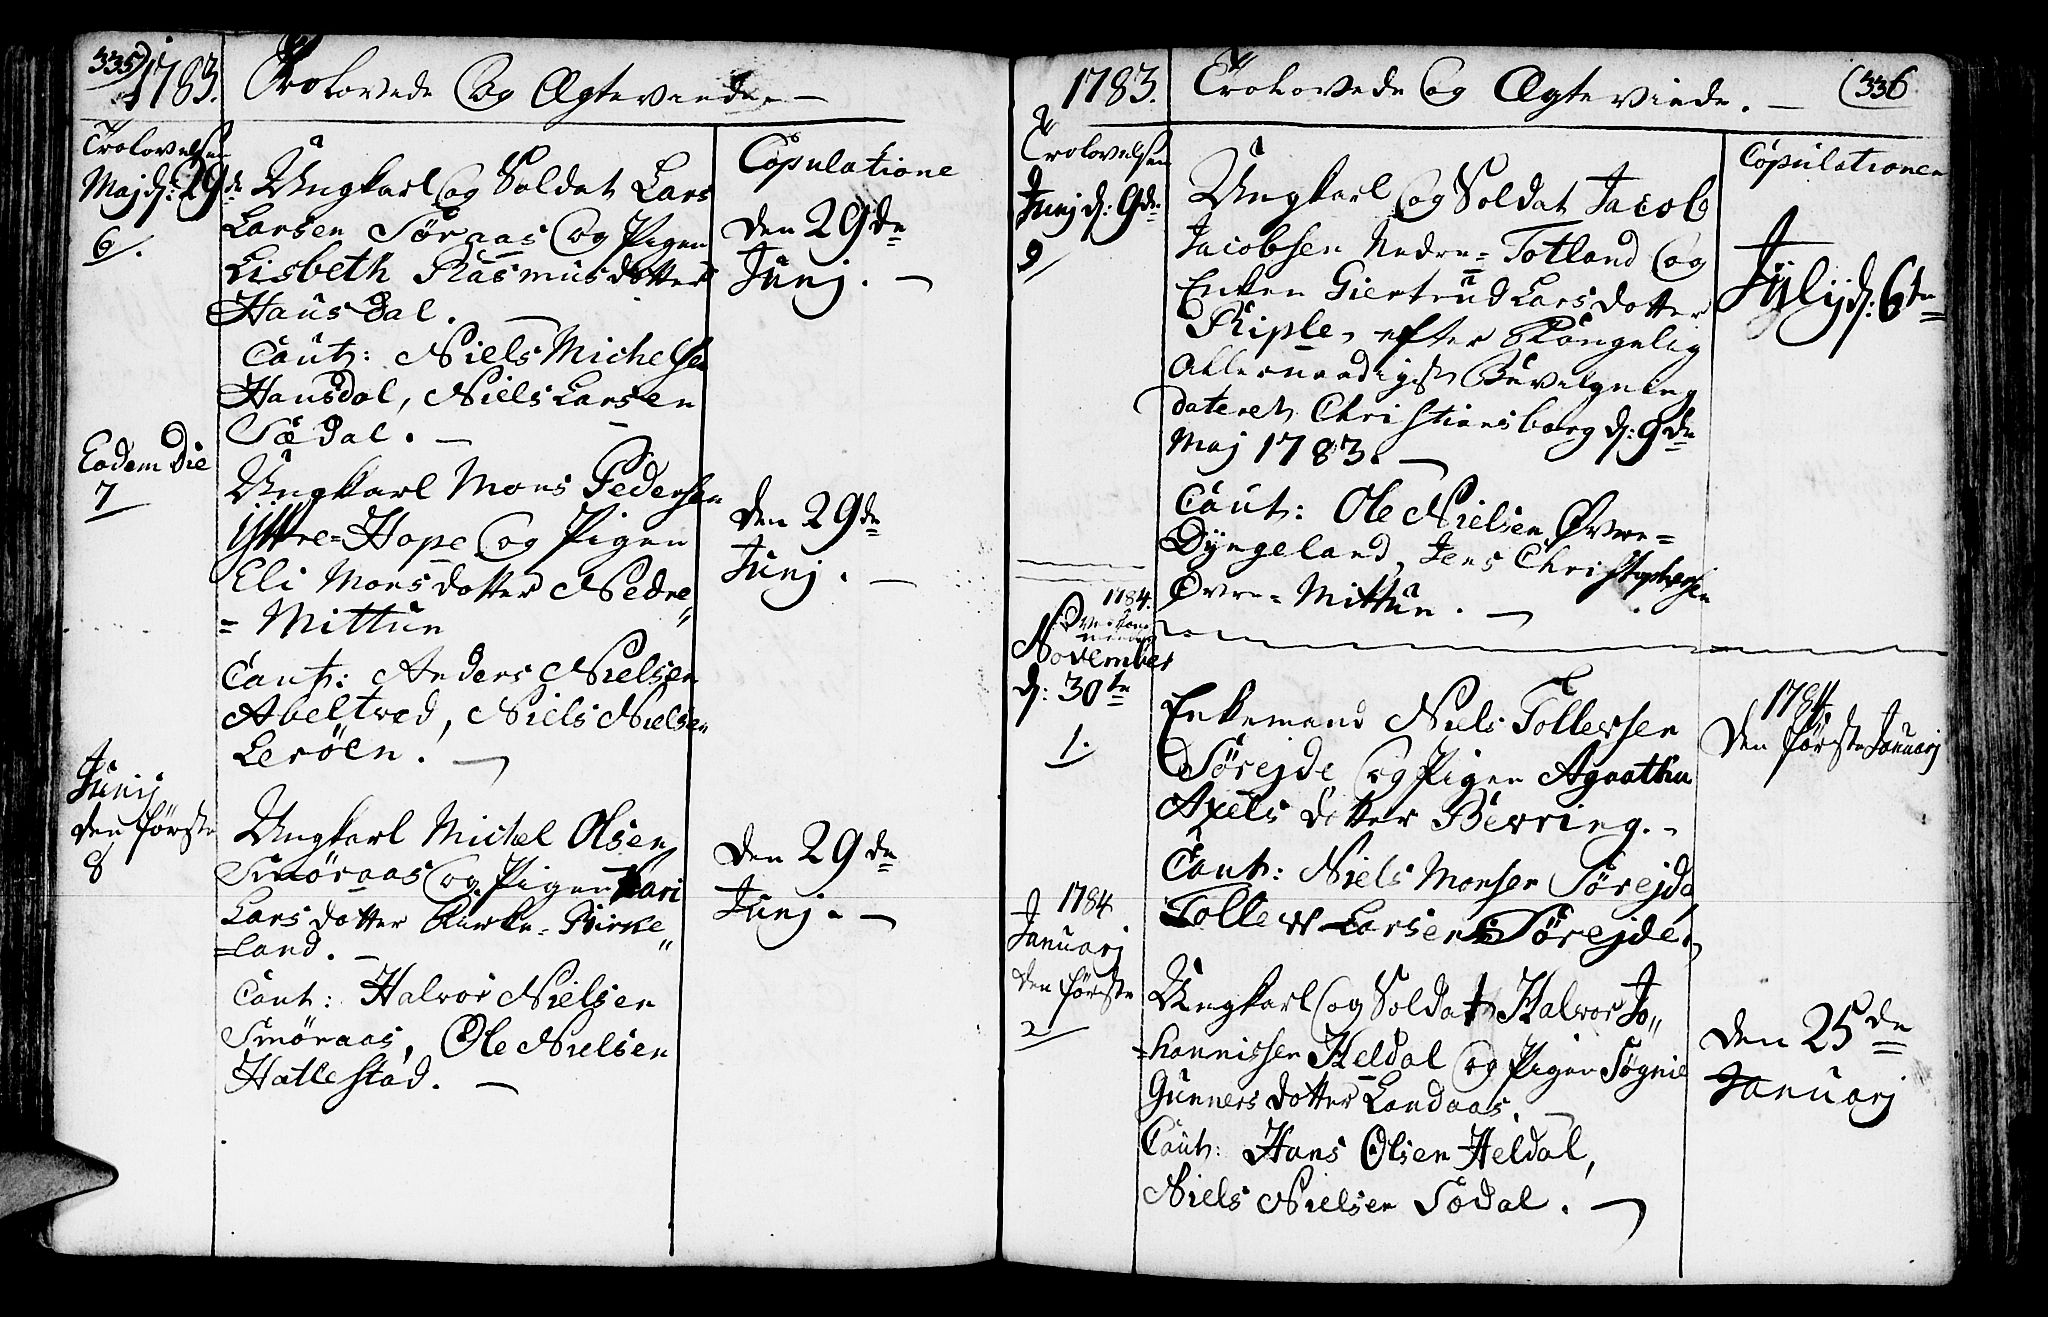 335) 1783. Trolovede Og Ægteviede. —
Trolovelsen
Maj d: 29de
6.
Ungkarl Og Soldat Lars
Larsen Søraas Og Pigen
Lisbeth Rasmusdotter
Hausdal. —
Caut: Niels Michelsen
Hausdal, Niels Larsen
Sædal. —
Copulatione
Den 29de
Junj. —
Eodem Die
7
Ungkarl Mons Pedersen
Yttre=Hope Og Pigen
Eli Monsdotter Nedre
=Mittun
Caut: Anders Nielsen
Abeltved, Niels Nielsen
Lerøen. —
Den 29de
Junj. —
Junij
den første
8
Ungkarl Michel Olsen
Smøraas Og Pigen Kari
Larsdotter Kirke=Birke
=land. —
Caut: Halvor Nielsen
Smøraas, Ole Nielsen
Hatlestad. —
Den 29de
Junj. —
1783. Trolovede Og Ægteviede. — (336
Trolovelsen
Junj d: 9de
9
Ungkarl Og Soldat Jacob
Jacobsen Nedre=Totland Og
Enken Giertrud Larsdotter
Riple, efter Kongelig
Allernaadigst Bevilgning
dateret Christiansborg d: 9de
Maj 1783. —
Caut: Ole Nielsen Øvre=
Dyngeland, Jens Christophersen
Øvre=Mittun. —
Copulationen
Jylij d: 6te
1784.
November
d: 30te
1.
Enkemand Niels Tollevsen
Sørejde Og Pigen Agaatha
Axelsdotter Bevring. -
Caut: Niels Monsen Sørejde,
Tollev Larsen Sørejde.
1784
Den første Januarj
1784
Januarj
den første
2
Ungkarl Og Soldat Halvor Jo=
=hannissen Heldal Og Pigen Søgnie
Gunnersdotter Landaas. —
Caut: Hans Olsen Heldal,
Niels Nielsen Sædal. —
Den 25de
Januarj